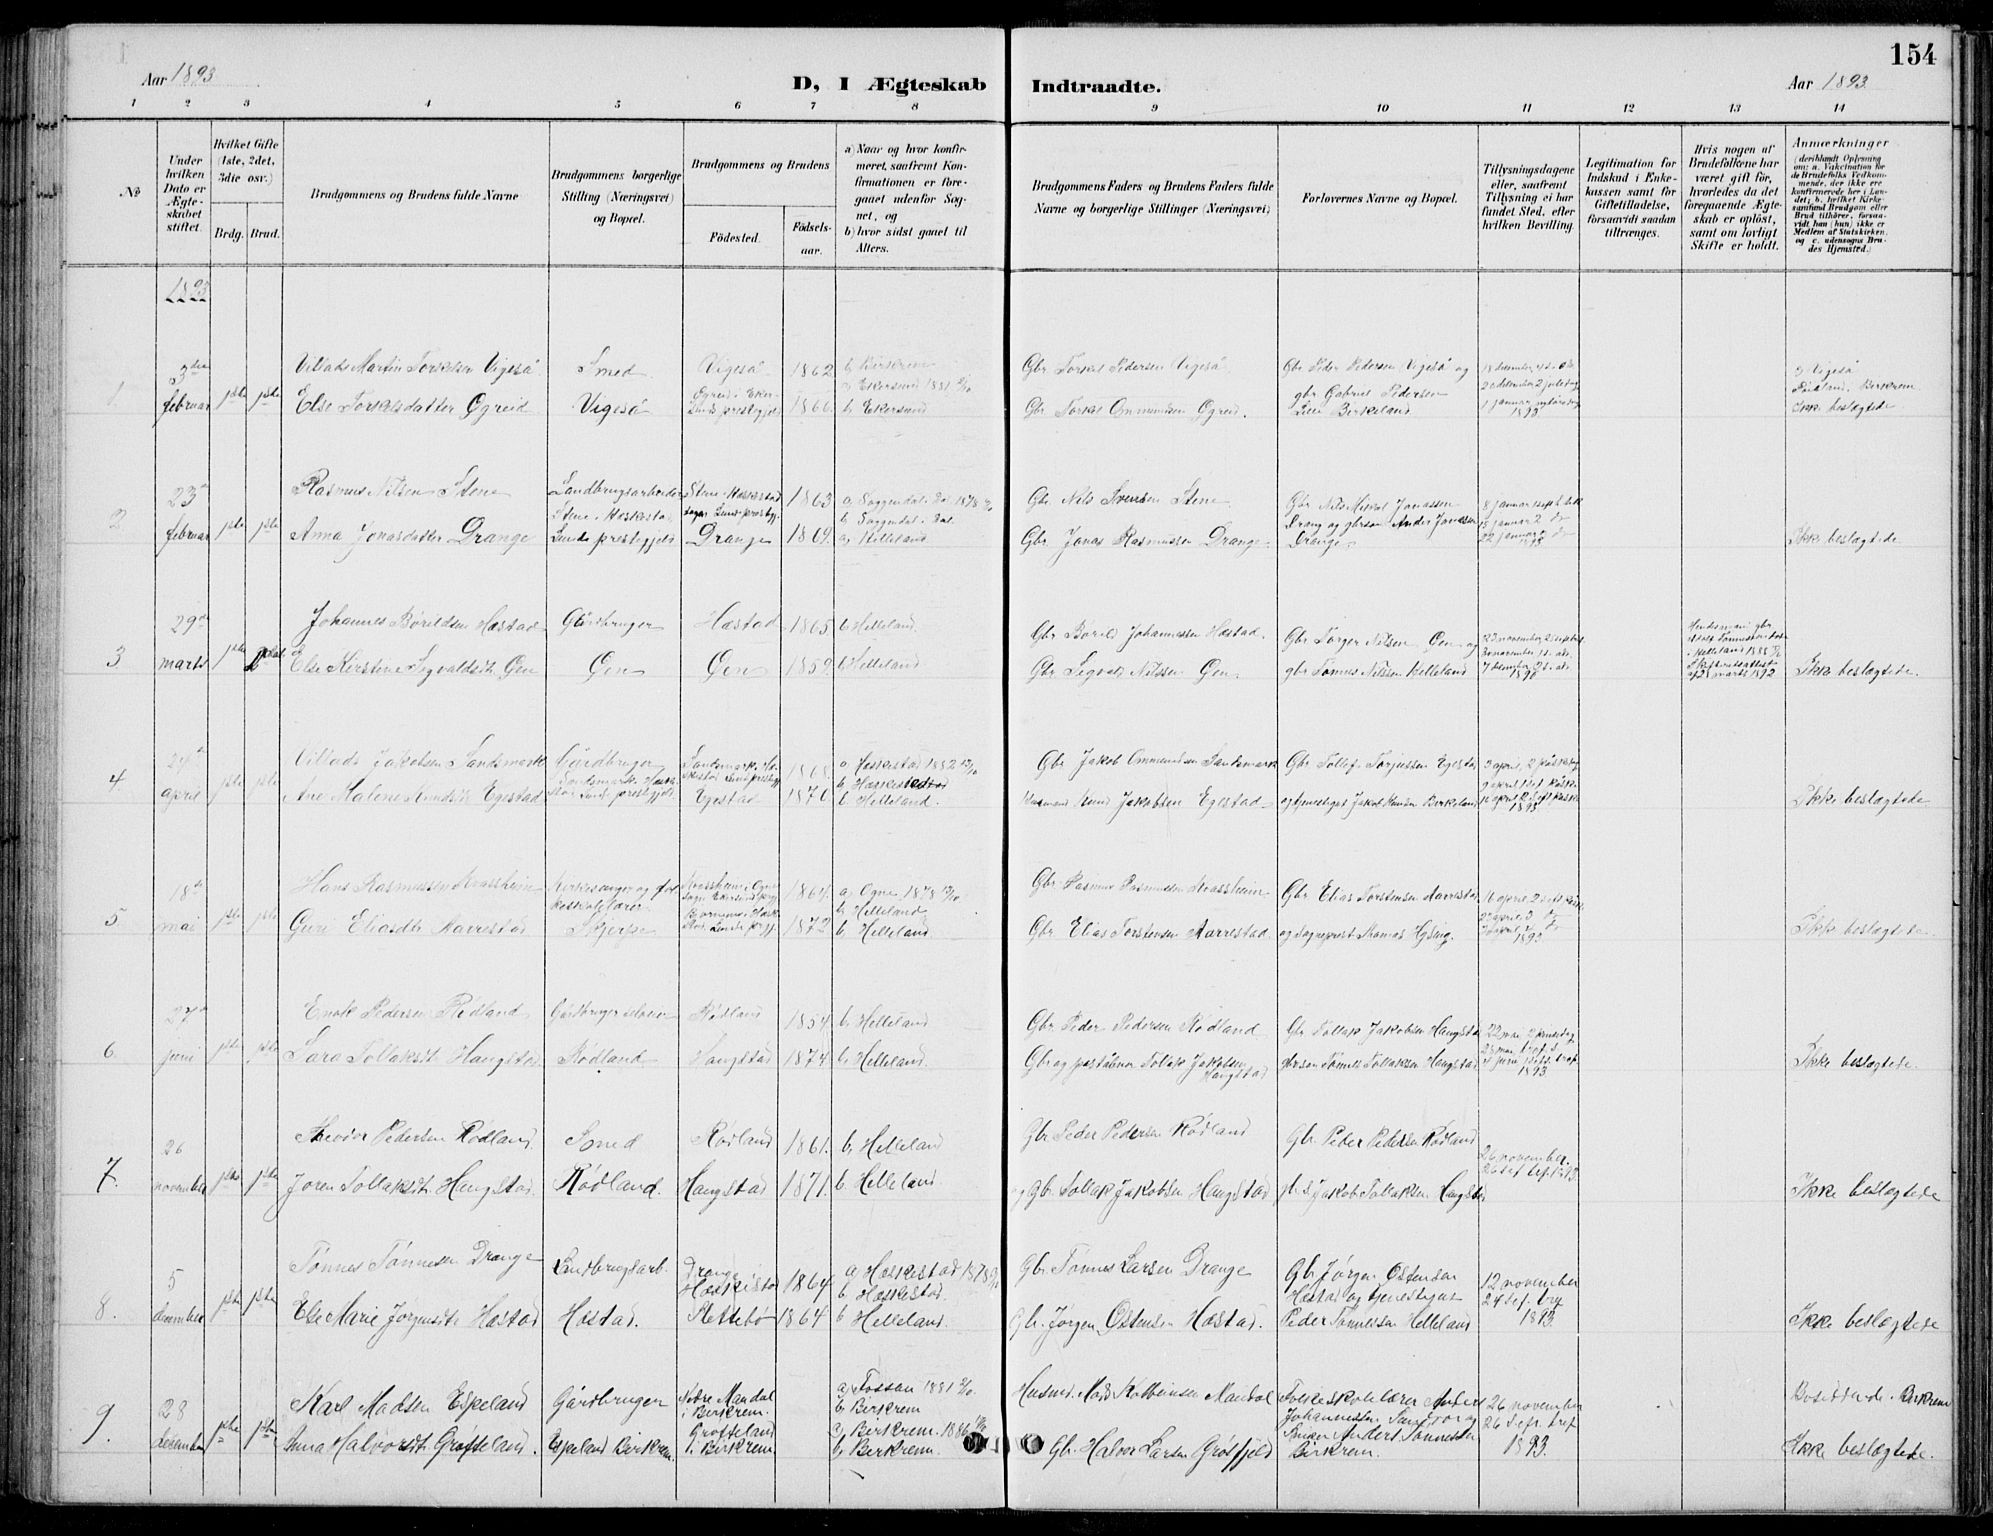 154
Aar 1893
D, I Ægteskab Indtraadte.
Aar 1893
1 2 3 4 5 6 7 8 9 10 11 12 13 14
No
Under hvilken Dato er Ægteskabet stiftet.
Hvilket Gifte (1ste, 2det, 3die osv.)
Brdg. Brud.
Brudgommens og Brudens fulde Navne
Brudgommens borgerlige Stilling (Næringsvei) og Bopæl.
Brudgommens og Brudens
Födested. Födsels-aar.
a) Naar og hvor konfirmeret, saafremt Konfirmationen er foregaaet udenfor Sognet, og
b) hvor sidst gaaet til Alters.
Brudgommens Faders og Brudens Faders fulde Navne og borgerlige Stillinger (Næringsvei)
Forlovernes Navne og Bopæl.
Tillysningsdagene eller, saafremt Tillysning ei har fundet Sted, efter hvilken Bevilling.
Legitimation for Indskud i Enkekassen samt for Giftetilladelse, forsaavidt saadan tiltrænges.
Hvis nogen af Brudefolkene har været gift för, hvorledes da det foregaaende Ægteskab er oplöst, samt om lovligt Skifte er holdt.
Anmærkninger
(deriblandt Oplysning om: a. Vakcination for de Brudefolks Vedkommende, der ikke ere konfirmerede her i Landet; b. hvilket Kirkesamfund Brudgom eller Brud tilhörer, forsaavidt han (hun) ikke er Medlem af Statskirken, og c. udensogns Brudes Hjemsted.)
1893
1
3die februar
1ste 1ste
Villads Martin Torkelsen Vigeså
Else Torkelsdatter Øgreid
Smed
Vigeså
Vigeså 1862
Øgreid i Ekersunds prestegjeld 1866
b, Birkrem
a, Ekersund 1881
b, Ekersund
Gbr Torkel Pedersen Vigeså
Gbr. Torkel Ommundsen Øgreid.
Gbr Peder Pedersen Vigeså og
gbr Gabriel Pedersen
Lille Birkeland
1 januar nytårsdag
1893
Vigeså
Birkrem
Ikke beslægtede
2
23 februar
1ste 1ste
Rasmus Nilsen Stene
Anna Jonasdatter Drange
Landbrugsarbeider
Stene. Heskestad
Lunds prestegjeld
Stene. Heskestad
sogn Lunds prestgj. 1863
Drange 1869.
a, Soggendal. Dal. 1878
b, Soggendal. Dal.
a, Helleland
Gbr. Nils Svensen Stene
Gbr. Jonas Rasmussen Drange
Gbr Nils Mikal Jonassen
Drang og gbrsøn Ander Jonassen
Drange
8 januar
15 januar 2
22 januar
1893
Ikke beslægtede
3
29de marts
1ste
Johannes Børildsen Hæstad
Else Kirstine Sigvaldsdt. Øen
Gårdbruger
Øen
Hæstad 1865
Øen 1859.
b, Helleland.
b, Helleland
Gbr. Børild Johannessen Hæstad.
Gbr. Sigvald Nilssen Øen.
Gbr Tørger Nilsen Øen og
gbr Tønnes Nilssen Helleland
23 november
30 november
7 desember
i Helleland 1888
Skifteretsattest
af 28 marts 1892
Ikke beslægtede.
4
24de april
1ste 1ste
Villads Jakobsen Sandsmark
Ane Malene Knudsdt Egestad
Gårdbruger
Sandsmark. Heskestad Lunds prestegjeld
Sandsmark. Heskestad Lunds prestegj. 1868
Egestad 1870
a, Heskestad 1882
b, Heskestad
b, Helleland.
Gbr Jakob Ommundsen Sandsmark
Husmand Knud Jakobsen Egestad
Gbr Tollef Torjussen Egestad
og tjenestegut Jakob Hansen Birkeland
3 april, 2 påskedag
9 april 1 s.e. påske
16 april 2 s.e. påske
1893
Ikke beslægtede
5
18de mai
1ste 1ste
Hans Rasmussen Krossheim
Guri Eliasdt Aarrestad
Kirkesanger og folkeskolelærer
Skjerpe
Krossheim i Ogne
sogn Ekersunds prgj. 1864.
1872
a, Ogne 1878
b, Helleland
b, Helleland
Gbr. Rasmus Rasmussen Krossheim
Gbr Elias Torstensen Aarrestad
Gbr Elias Torstensen Aarrestad
og sogneprest Thomas Hysing.
16 april 2 s.e. påske
23 april 3
30 april
1893
Ikke beslægtede.
6.
27de juni
1ste 1ste
Enok Pedersen Rødland
Sara Tollaksdt Haugstad
Gårdbruger selveier
Rødland
Rødland 1854
Haugstad 1874
b, Helleland
b, Helleland.
Gbr Peder Pedersen Rødland
Gbr og postådner Tollak Jakobsen
Haugstad
Gbr. Tollak Jakobsen Haugstad
gbrsøn Tønnes Tollaksen Haugstad
22 mai 2 pinsedag
28 mai tref. s.
4 juni 1 s. e. tref
1893.
Ikke beslægtede.
7.
26 november
1ste 1ste
Theodor Pedersen Rødland
Joren Tollaksdt. Haugstad.
Smed
Rødland.
Rødland 1861.
Haugstad 1871.
b, Helleland
b, Helleland.
Gbr Peder Pedersen Rødland
og Gbr. Tollak Jakobsen Haugstad
Gbr. Peder Pedersen Rødland
Jakob Tollaksen Haugstad
26 november.
26 s. ef. tref. 1893.
Ikke beslægtede
8.
5 desember
1ste 1ste
Tønnes Tønnesen Drange
Else Marie Jørgensdt Hæstad
Landbrugsarb.
Hæstad.
Drange
Heskestad 1864
Slettebø 1864
a, Heskestad 1878
b, Heskestad.
b, Helleland.
Gbr. Tønnes Larsen Drange
Gbr. Jørgen Østensen Hæstad.
Gbr Jørgen Østensen
Hæstad og tjenestegut
Peder Tønnessen Helleland
12 november
24 s. ef. tref
1893.
Ikke beslægtede
9.
28 desember
1ste 1ste
Karl Madsen Espeland
Anna Halvordsdt. Grøfteland.
Gårdbruger
Espeland Birkrem.
Nedre Maudal
i Birkrem.
Grøfteland
i Birkrem
a, Fossan 1881
b, Birkrem
a, Birkrem. 1886
b, Birkrem.
Husmd. Mads Kolbeinsen Maudal
Gbr. Halvor Larsen Grøsfjeld
Folkeskolelærer Anders
Johannessen og
Andert Tønnessen
Birkrem.
26 november
26 s. ef. tref
1893.
Bosiddende. Birkrem
Ikke beslægtede.